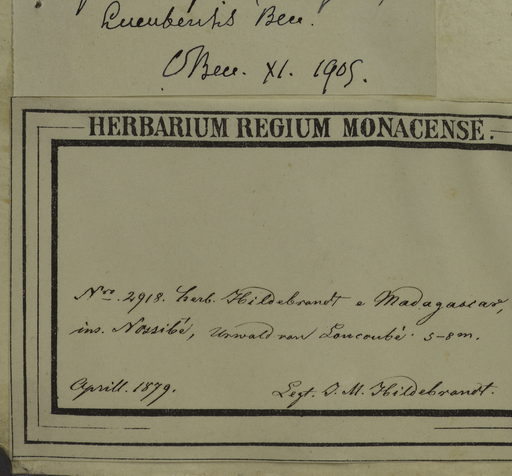 Lucubensis Becc.
OBecc. XI. 1905.
HERBARIUM REGIUM MONACENSE.
Nro. 2918. herb. Hildebrandt e Madagascar,
ins. Nossibé, Urwald von Loucoubé. 5-8m.
Aprill. 1879. Legt. J. M. Hildebrandt.